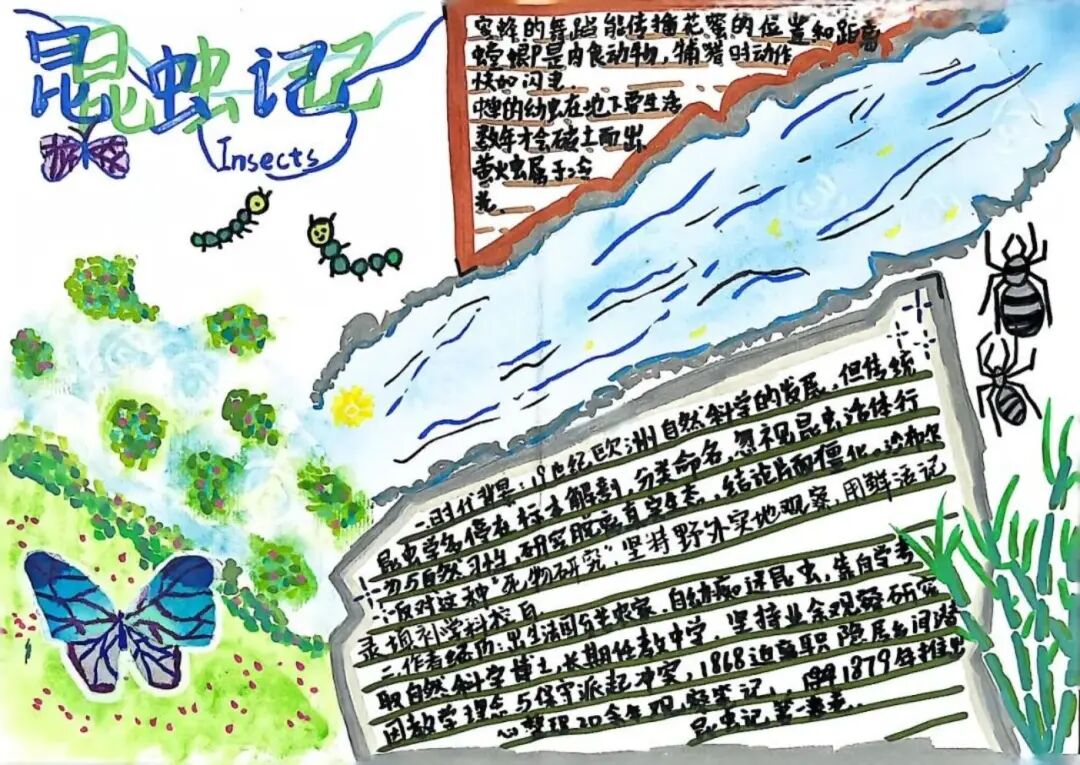 昆虫记
Insects
蜜蜂的舞蹈能传播花蜜的位置和距离
螳螂是肉食动物,捕猎时动作
快如闪电.
蝉的幼虫在地下要生活
数年才会破土而出
萤火虫属于冷
光.
一.时代背景:19世纪欧洲自然科学的发展,但传统
昆虫学多停在标本解剖,分类命名,忽视昆虫活体行
为与自然习性,研究脱离真实生态,结论片面僵化。法布尔
反对这种"死物研究",坚持野外实地观察,用鲜活记
录填补学科
二.作者经历:出生法国 自幼痴迷昆虫,靠自学考
取自然科学博士,长期任教中学,坚持业余观察研究
因教学理念与保守派起冲突,1868迫辞职隐居乡间潜
心整理20余年观察笔记, 1879年推出
昆虫记第一卷